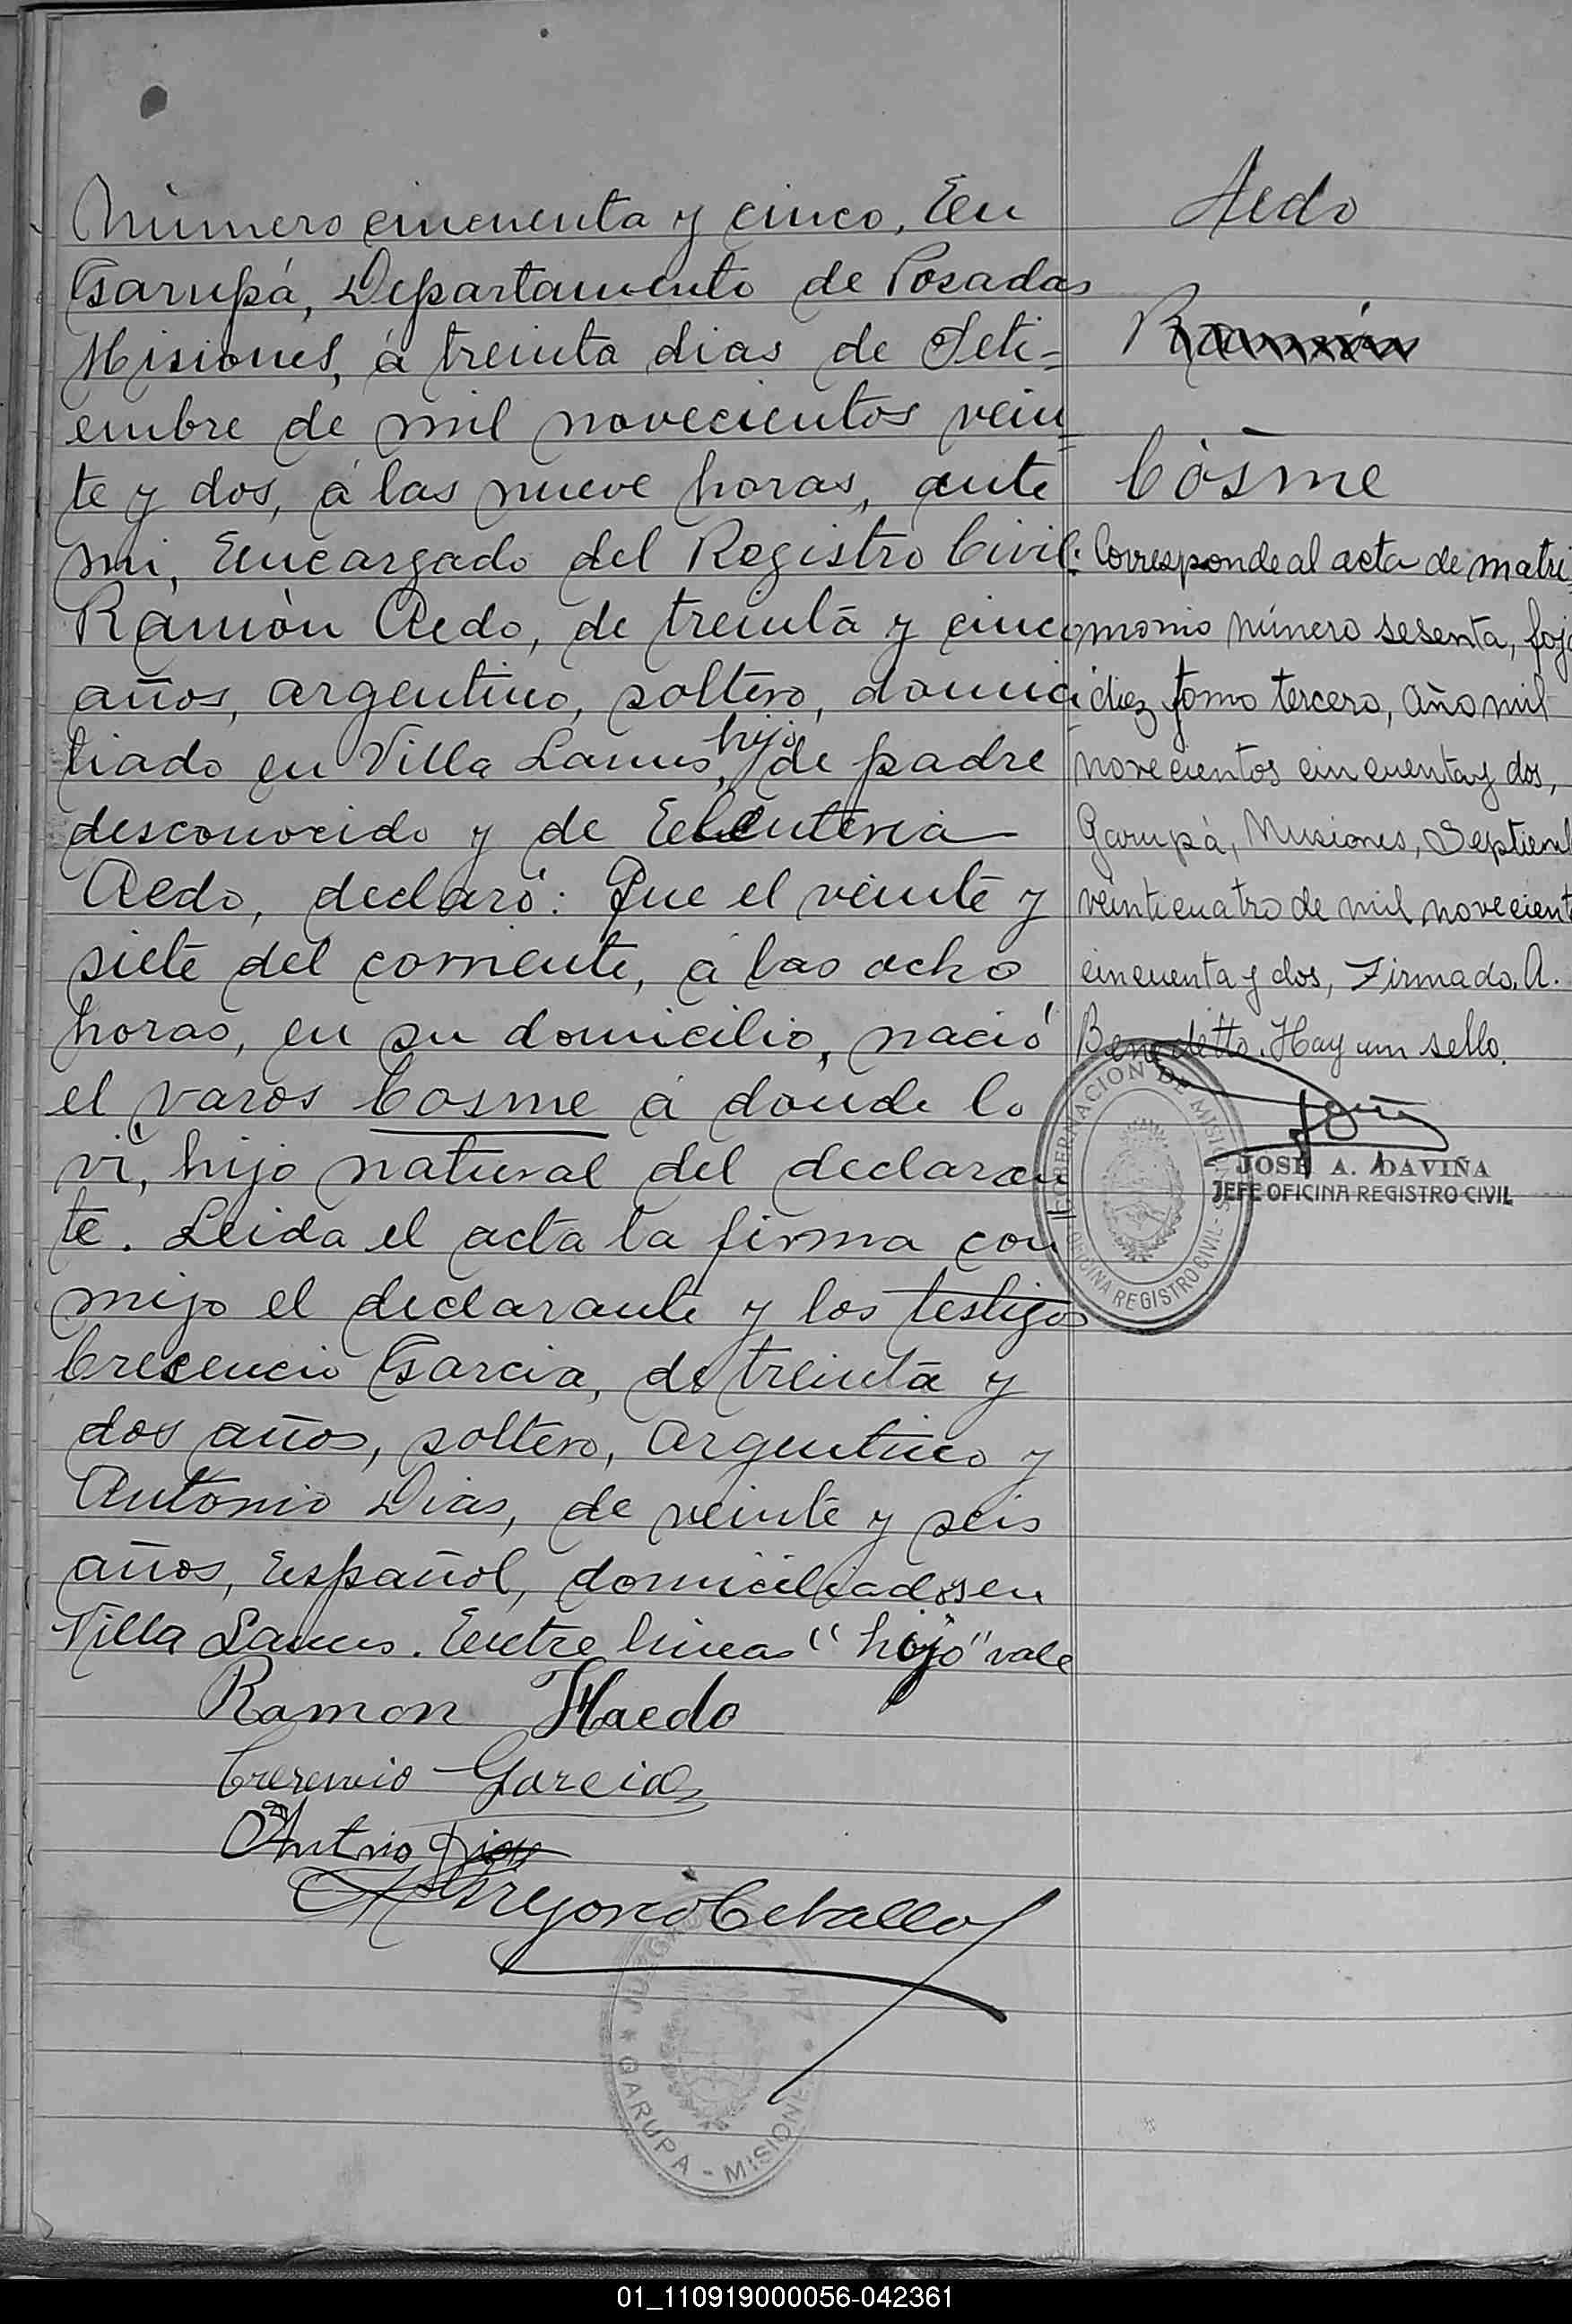 Número cincuenta y cinco. En
Garupá, Departamento de Posadas
Misiones, á treinta dias de Seti-
embre de mil novecientos vein
te y dos, á las nueve horas, ante
mi, Encargado del Registro Civil:
Ramòn Aedo, de treinta y cinco
años, argentino, soltero, domici
liado en Villa Lanus, hijo de padre
desconocido y de Eleuteria
Aedo, declaró: Que el veinte y
siete del corriente, á las ocho
horas, en su domicilio, nació
el varos Cosme á donde lo
vi, hijo natural del declaran
te. Leida el acta la firma con
migo el declarante y los testigos
Crecencio Garcia, de treinta y
dos años, soltero, argentino y
Antonio Dias, de veinte y seis
años, Español, domiciliados en
Villa Lanus. Entre lineas "hijo" vale
Ramon Haedo
Crecencio Garcia
Antnio Dias
Gregorio Ceballos
JUZGADO DE PAZ
GARUPA - MISIONES
Aedo
Ramón
Cósme
Corresponde al acta de matri
monio número sesenta, foja
diez tomo tercero, año mil
novecientos cincuenta y dos,
Garupá, Misiones, Septiemb
veinticuatro de mil novecient
cincuenta y dos, Firmado. A.
Benedetto. Hay un sello.
GOBERNACION DE MISIONES
OFICINA REGISTRO CIVIL
JOSE A. DAVIÑA
JEFE OFICINA REGISTRO CIVIL
01_110919000056-042361